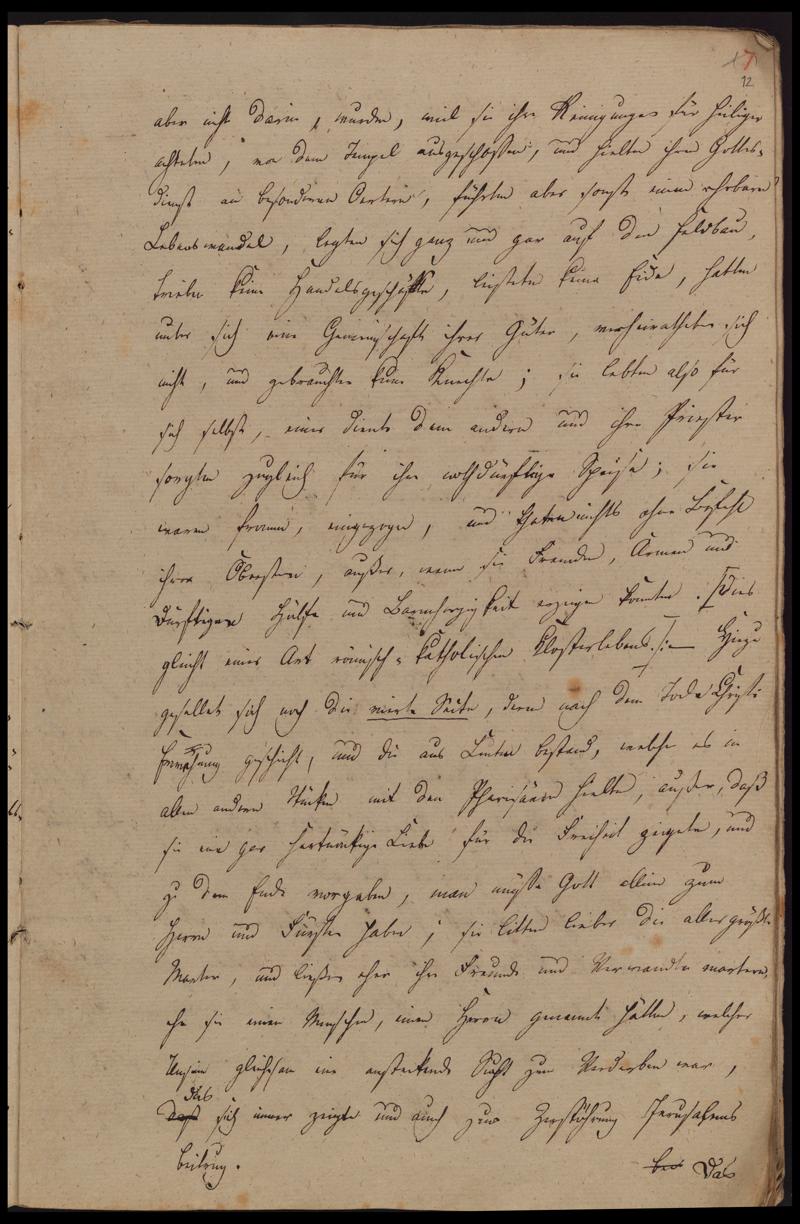 17
12
aber nicht darin, wurden, weil sie ihre Reinigungen für heiliger
achteten, von dem Tempel ausgeschlossen, und hielten ihren Gottes-
dienst an besonderen Oertern, führten aber sonst einen ehrbaren
Lebenswandel, legten sich ganz und gar auf den Feldbau,
trieben keine Handelsgeschäfte, leisteten keine Eide, hatten
unter sich eine Gemeinschaft ihrer Güter, verheiratheten sich
nicht, und gebrauchten keine Knechte; sie lebten also für
sich selbst, einer diente dem andern und ihre Priester
sorgten zugleich für ihre nothdürftige Speise; sie
waren fromm, eingezogen, und thaten nichts ohne Befehl
ihrer Obersten, außer, wenn sie Fremden, Armen und
Dürftigen Hülfe und Barmherzigkeit erzeigen konnten. /:Dies
gleicht einer Art römisch-katholischen Klosterlebens.:/ — Hiezu
gesellet sich noch die vierte Sekte, deren nach dem Tode Christi
Erwähnung geschieht, und die aus Leuten bestand, welche es in
allen andern Stücken mit den Pharisäern hielten, außer, daß
sie eine gar hartnäckige Liebe für die Freiheit zeigten, und
zu dem Ende vorgaben, man müßte Gott allein zum
Herrn und Fürsten haben; sie litten lieber die allergrößte
Marter, und ließen eher ihre Freunde und Verwandten martern,
ehe sie einen Menschen, einen Herrn genannt hätten, welcher
Unsinn gleichsam eine ansteckende Sucht zum Verderben war,
das
daß sich immer zeigte und auch zur Zerstöhrung Jerusalems
beitrug.
bei Das